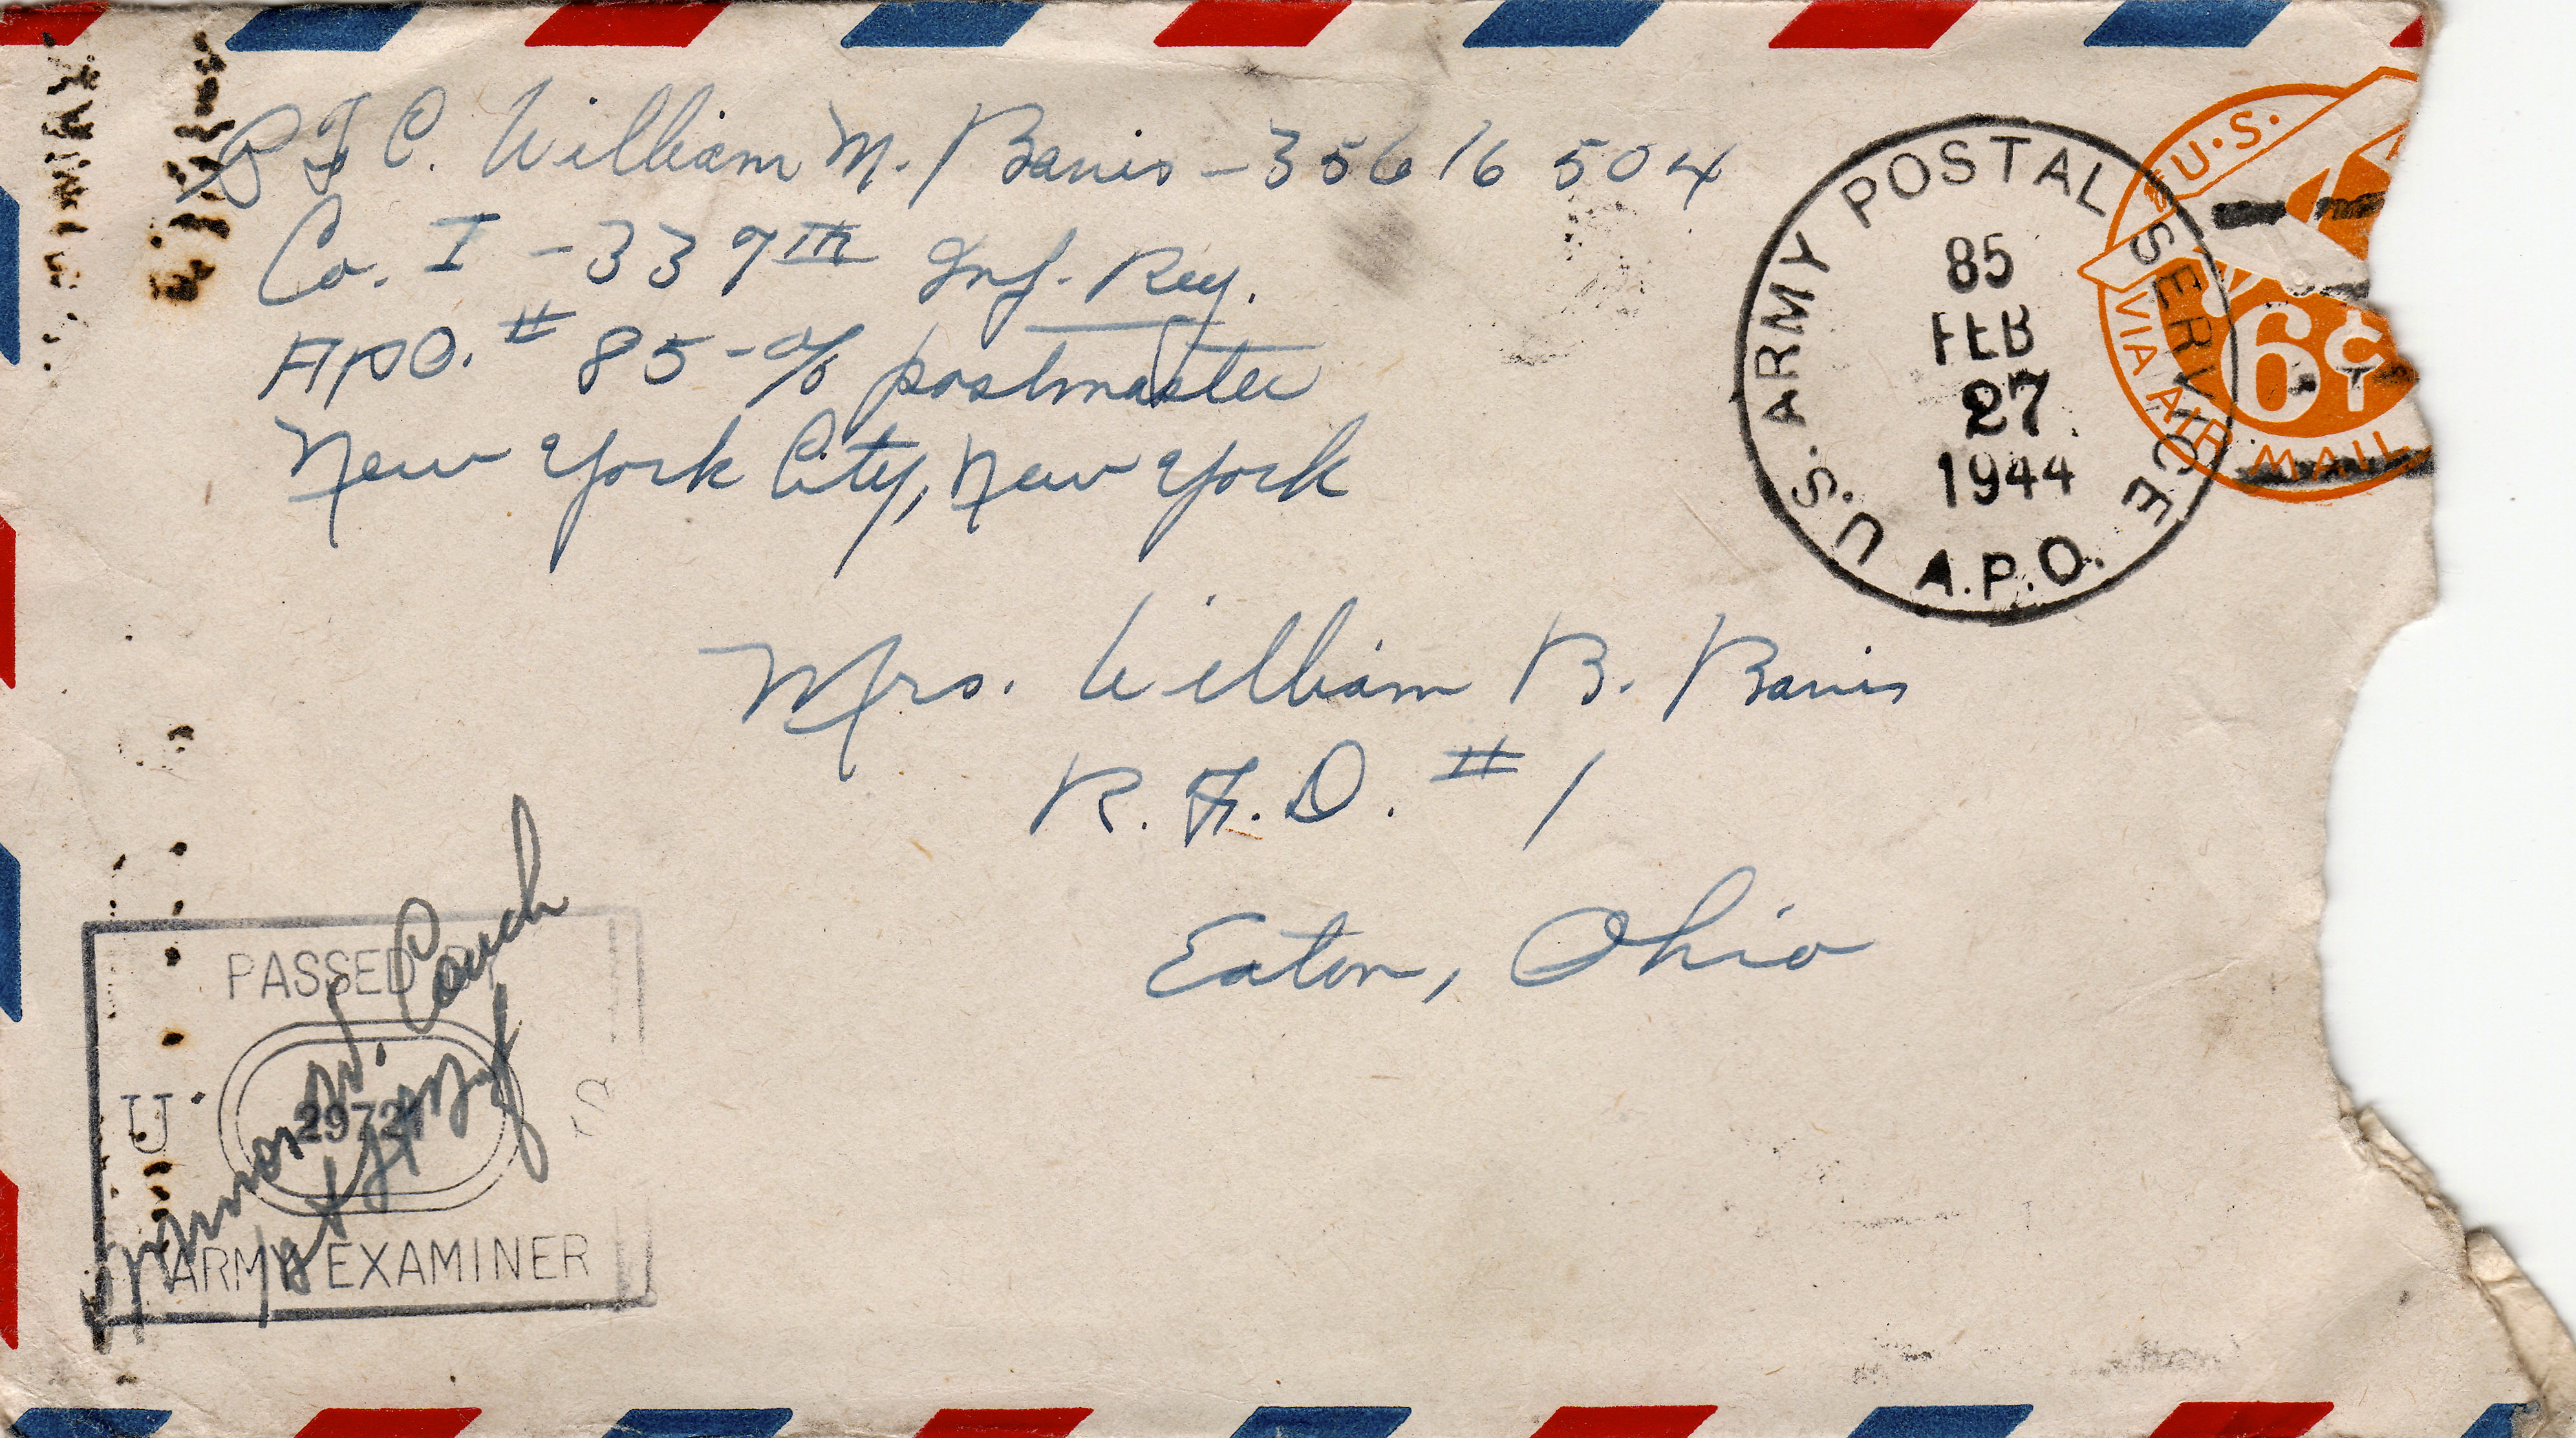 PFC. William M. Banis - 35616504
Co. I - 339th Inf. Reg.
APO. # 85 - c/o postmaster
New York City, New York
U.S. ARMY POSTAL SERVICE
85
FEB
27
1944
A.P.O.
U.S.
6¢
VIA AIR MAIL
Mrs. William B. Banis
R.F.D. # 1
Eaton, Ohio
PASSED BY
U S
29721
ARMY EXAMINER
W. Couch